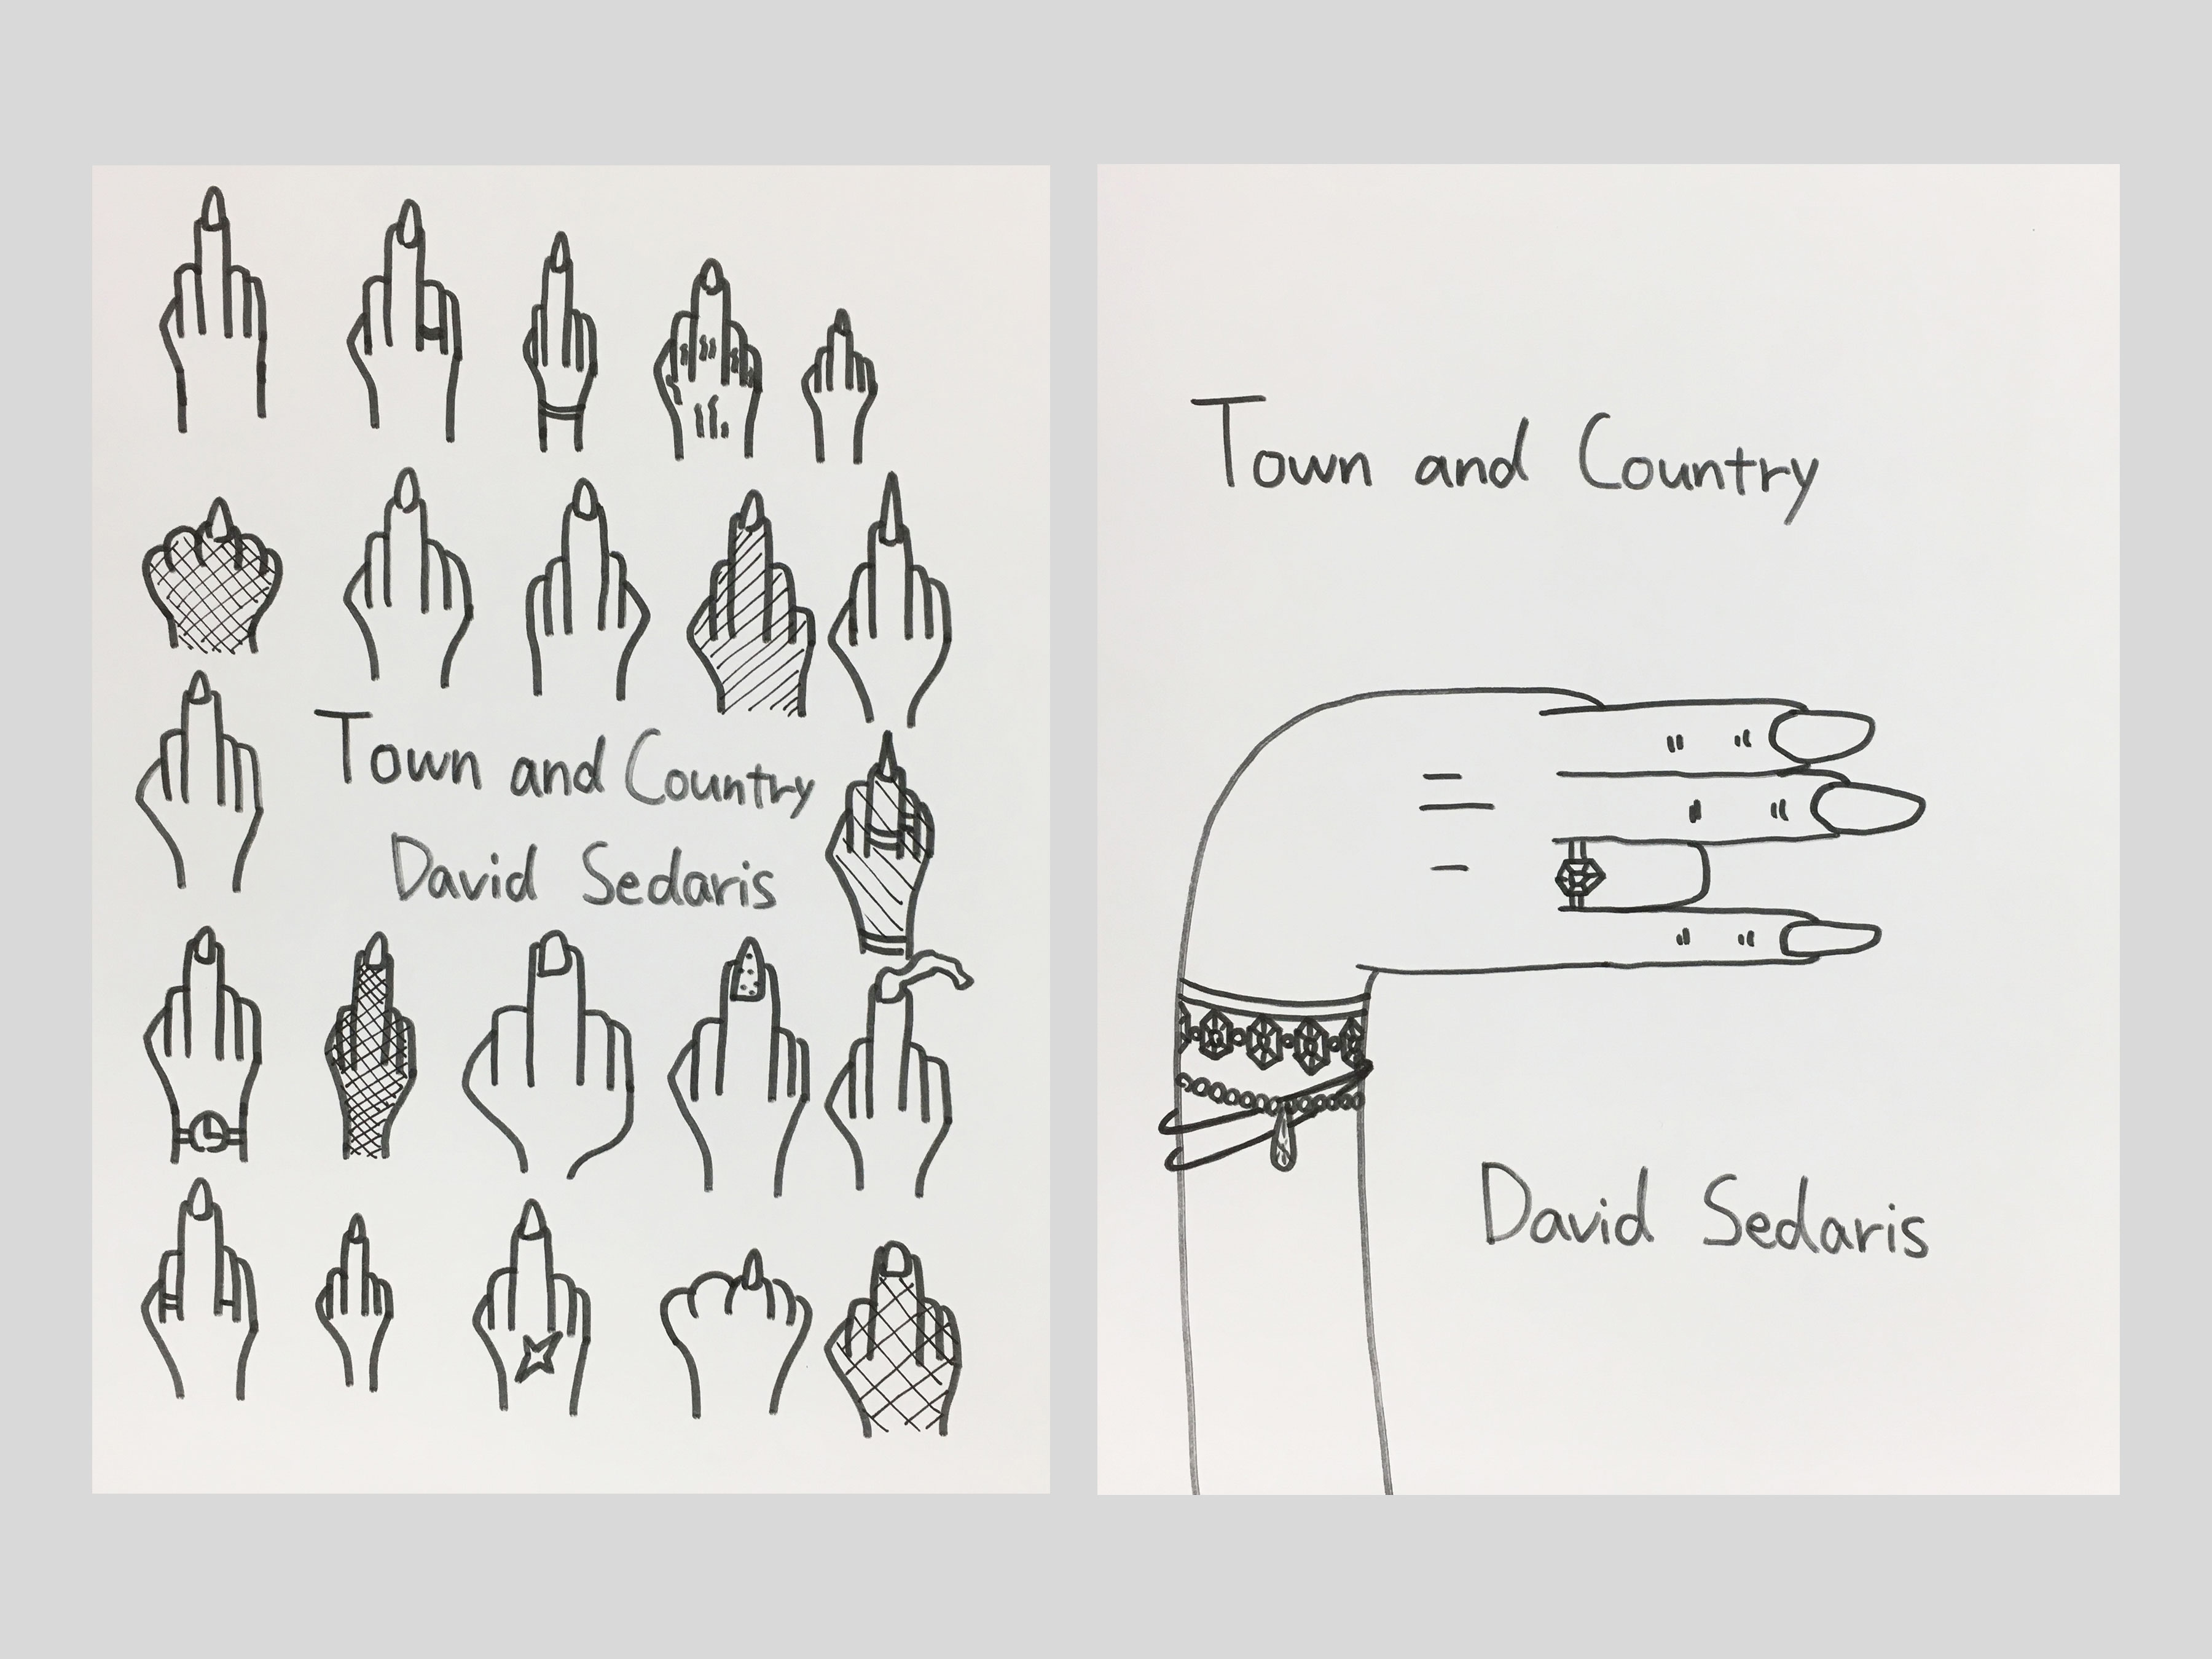 Town and Country
David Sedaris
Town and Country
David Sedaris